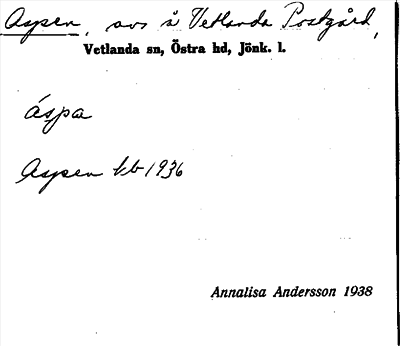 Aspen, avs å Vetlanda Postgård,
Vetlanda sn, Östra hd, Jönk. l.
áspa
Aspen kb 1936
Annalisa Andersson 1938